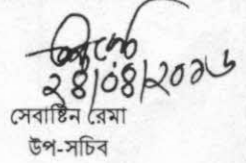 ২৪/০৪/২০১৬
সেবাষ্টিন রেমা
উপ-সচিব